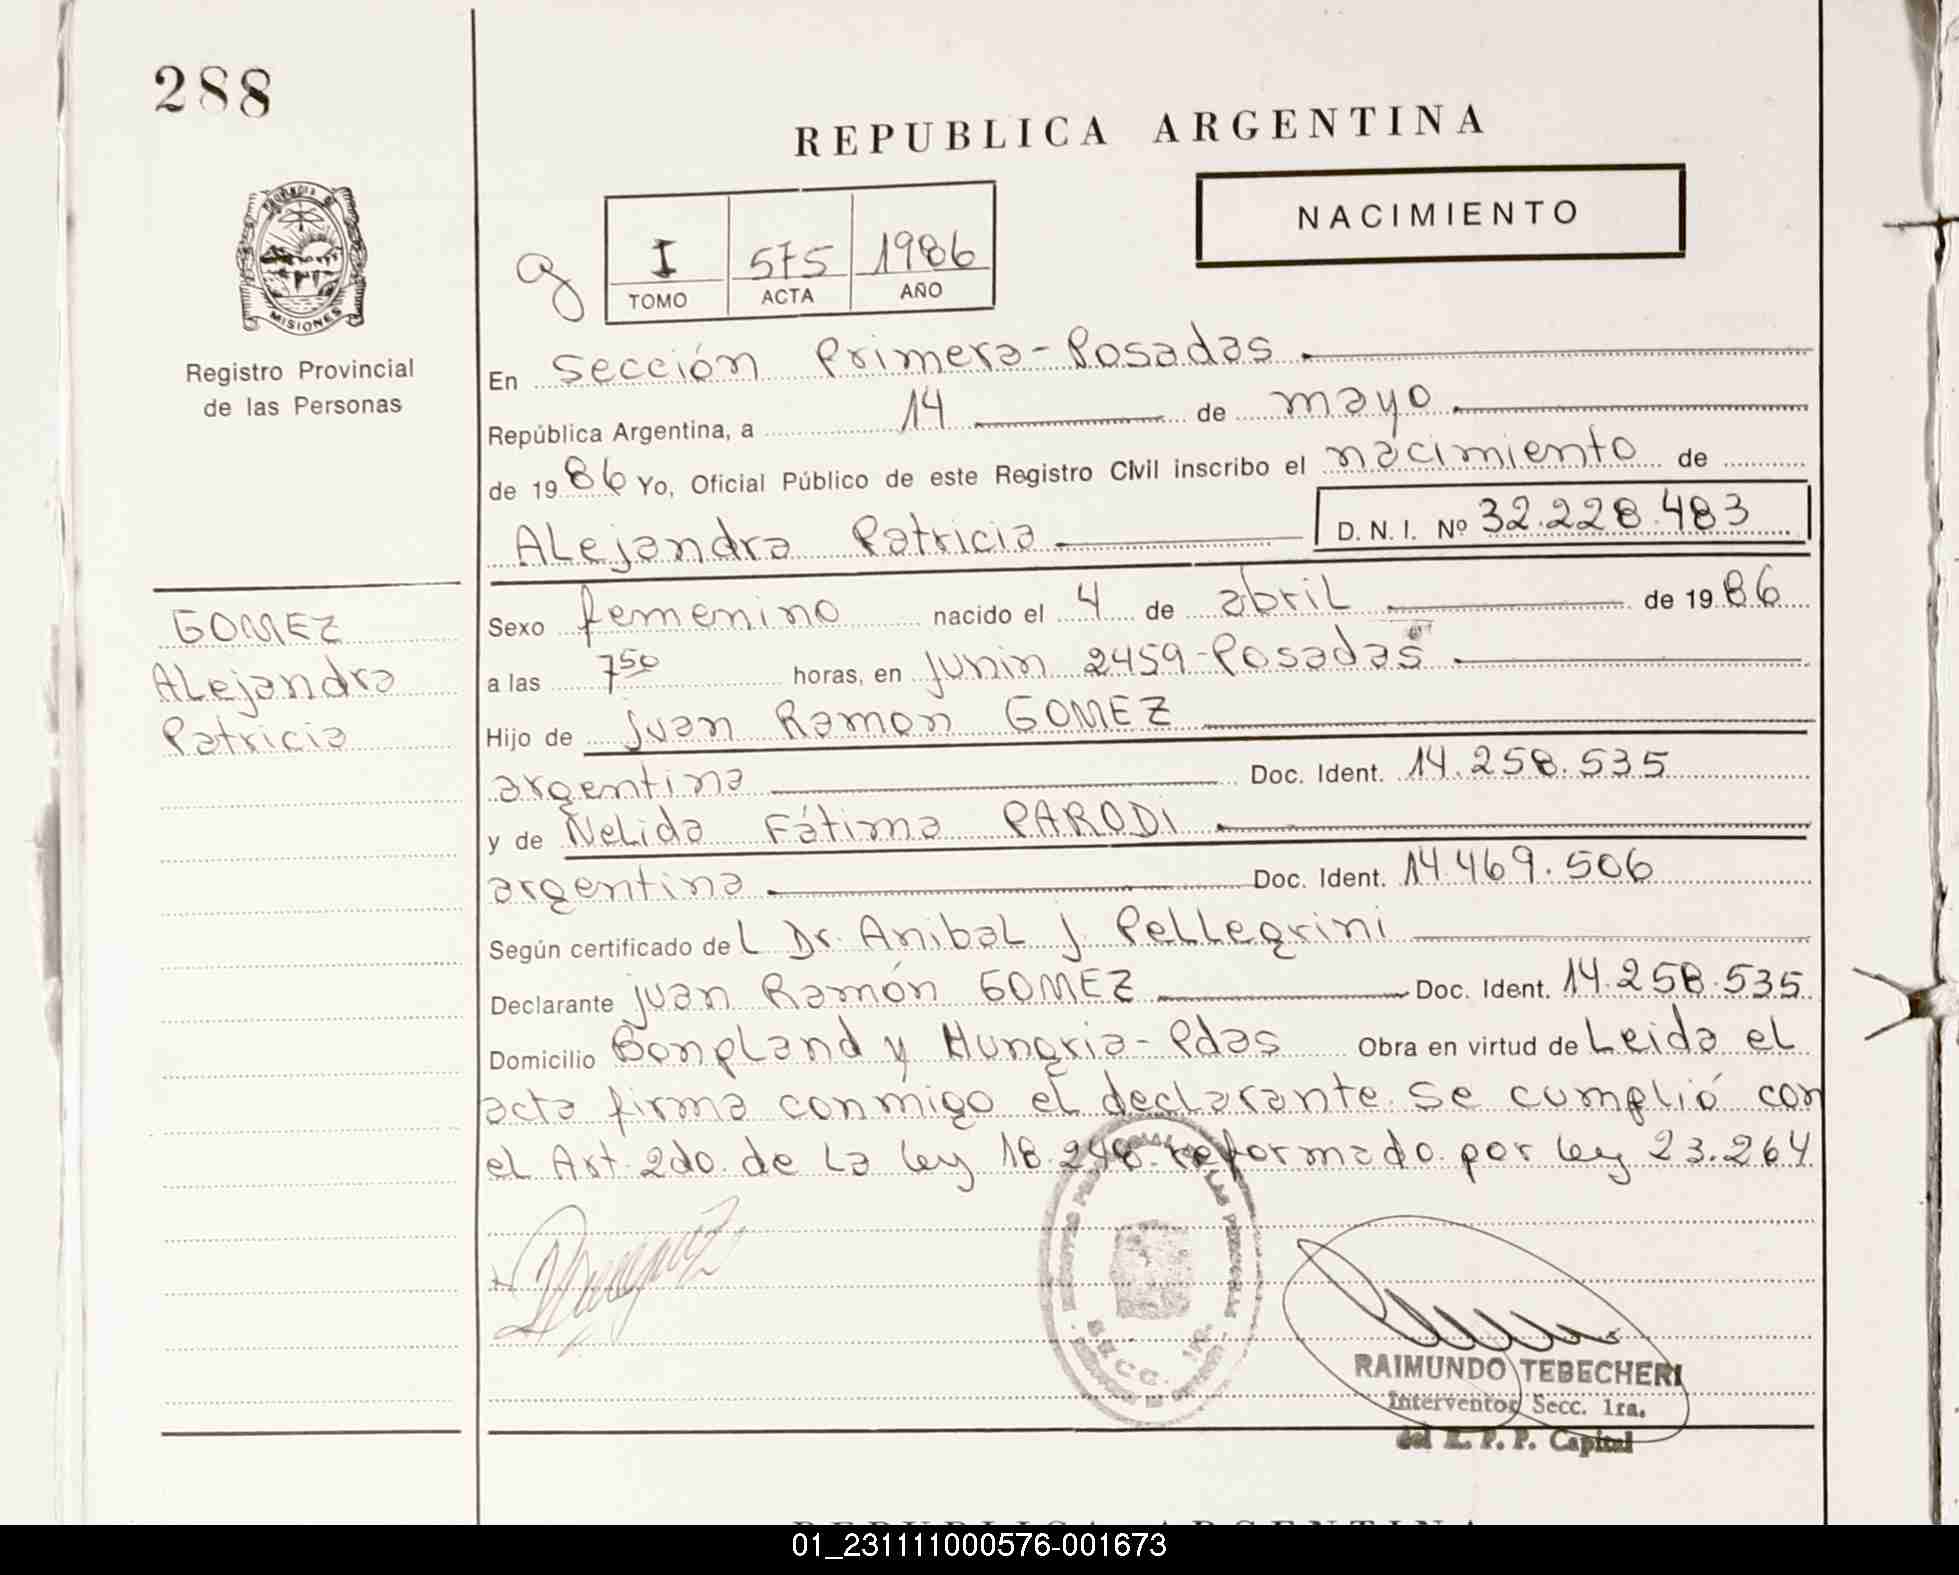 288
REPUBLICA ARGENTINA
NACIMIENTO
I 575 1986
TOMO ACTA AÑO
PROVINCIA D
MISIONES
Registro Provincial
de las Personas
En Sección Primera - Posadas
República Argentina, a 14 de mayo
de 1986 Yo, Oficial Público de este Registro Civil inscribo el nacimiento de
Alejandra Patricia D.N.I. Nº 32.228.483
GOMEZ
Alejandra
Patricia
Sexo femenino nacido el 4 de abril de 1986
a las 7 50 horas, en Junin 2459 - Posadas
Hijo de Juan Ramon GOMEZ
argentina Doc. Ident. 14.258.535
y de Nelida Fátima PARODI
argentina Doc. Ident. 14.469.506
Según certificado del Dr. Anibal J. Pellegrini
Declarante Juan Ramón GOMEZ Doc. Ident. 14.258.535
Domicilio Bonpland y Hungria - Pdas Obra en virtud de Leida el
acta firma conmigo el declarante. Se cumplió con
el Art. 2do. de la ley 18.248 reformado por ley 23.264
SECC. 1RA.
RAIMUNDO TEBECHERI
Interventor Secc. 1ra.
del R. P. P. Capital
REPUBLICA ARGENTINA
01_231111000576-001673